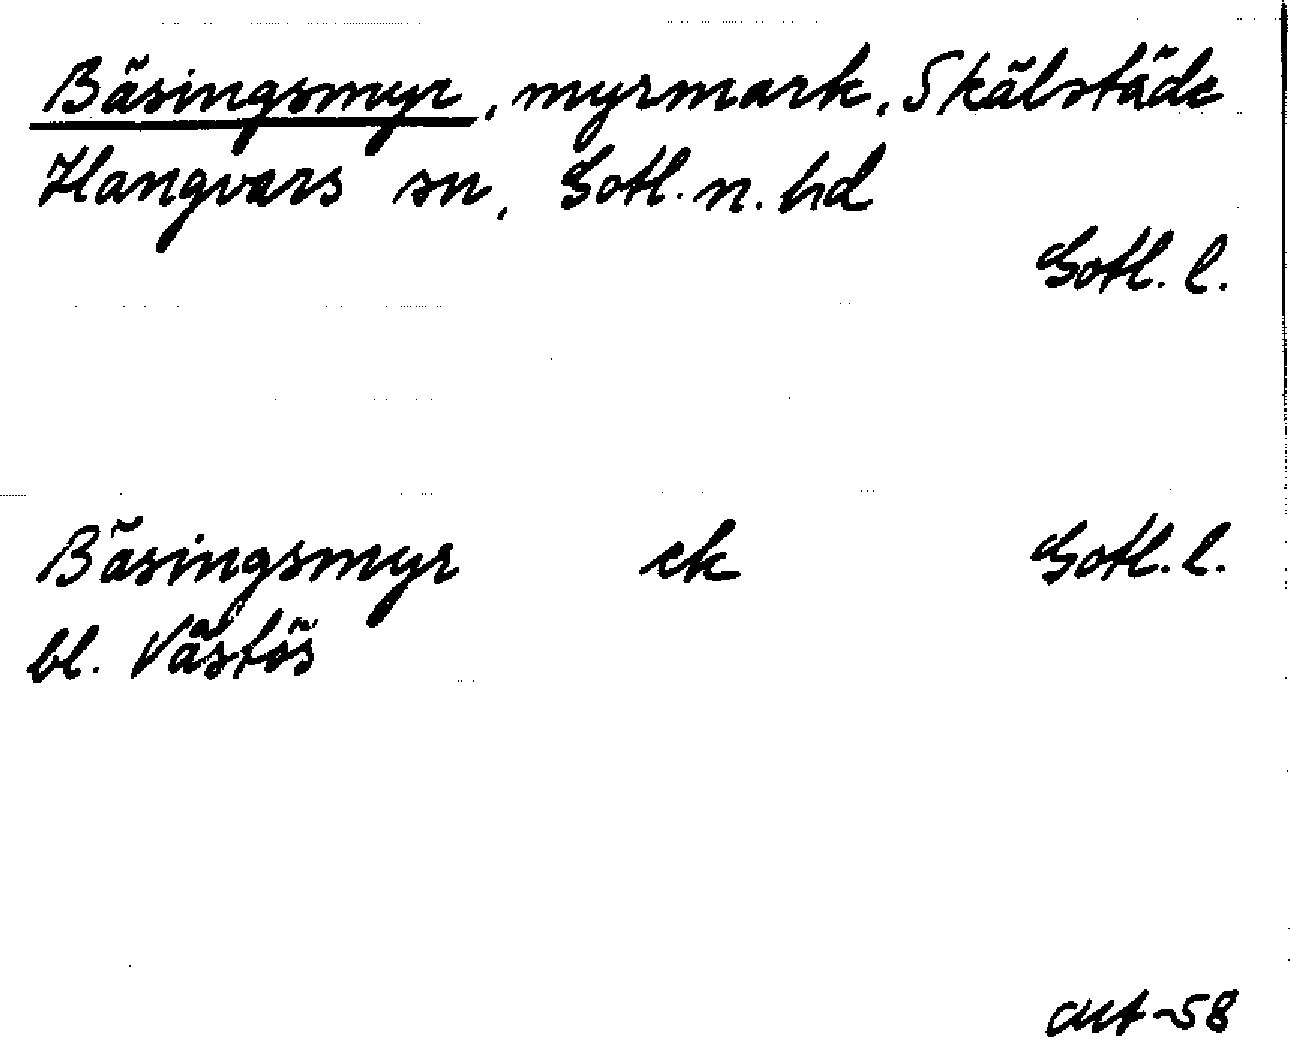 Bäsingsmyr, myrmark, Skälstäde
Hangvars sn, Gotl. n. hd
Gotl. l.
Bäsingsmyr ek Gotl. l.
bl. Västös
-58